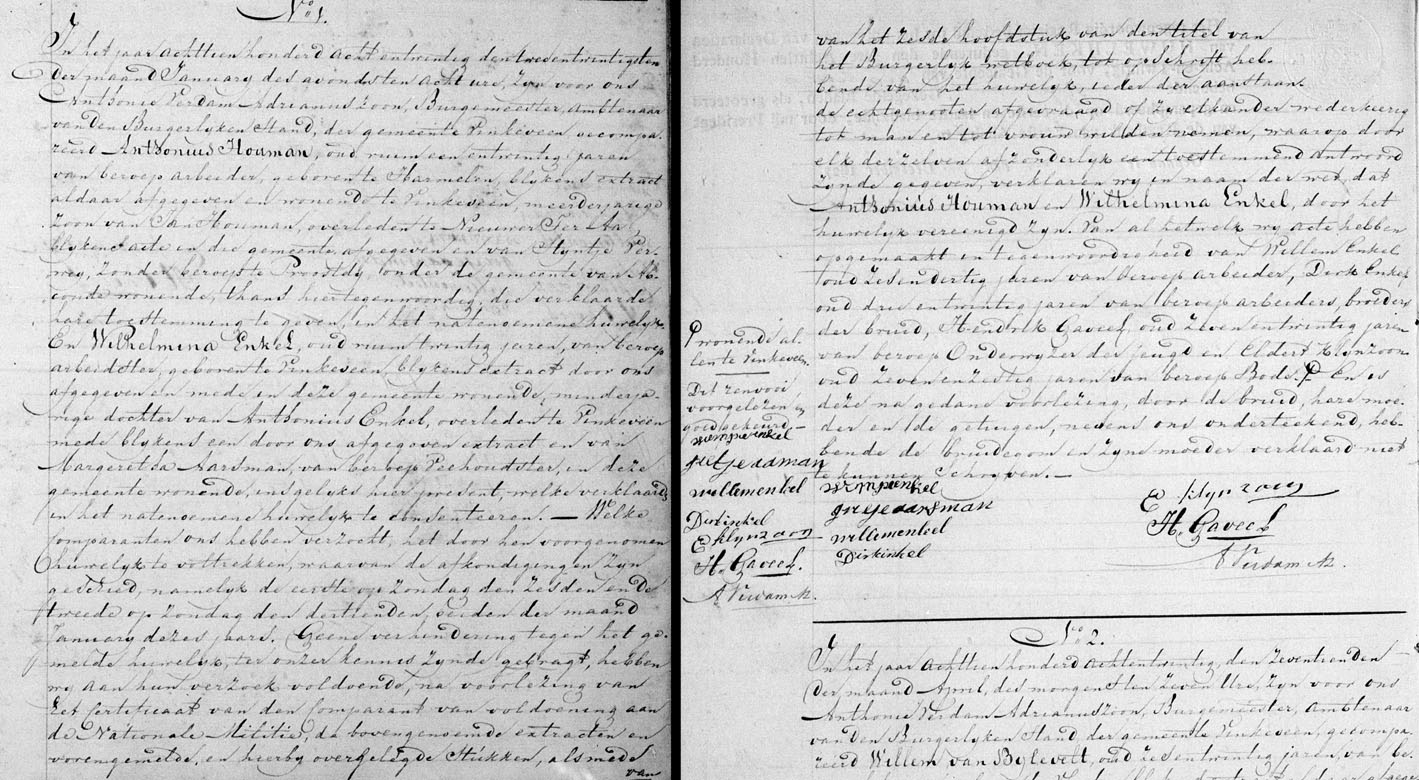 No 1.
In het jaar achttien honderd acht en twintig den tweeentwintigsten
der maand January des avonds ten acht ure, zyn voor ons
Anthonie Verdam Adrianus Zoon, Burgemeester, Ambtenaar
van den Burgerlyken Stand, der gemeente Vinkeveen gecompa-
reerd Anthonius Houman, oud ruim een en twintig jaren
van beroep arbeider, geboren te Harmelen, blykens extract
aldaar afgegeven en wonende te Vinkeveen, meerderjarige
zoon van Jan Houman, overleden te Nieuwer Ter Aa,
blykens acte in die gemeente afgegeven en van Styntje Ver-
wey, zonder beroep te Proostdy onder de gemeente van Ab-
coude wonende, thans hier tegenwoordig, die verklaarde
hare toestemming te geven, in het natenoemene huwelyk.
En Wilhelmina Enkel, oud ruim twintig jaren, van beroep
arbeidster, geboren te Vinkeveen blykens extract door ons
afgegeven en mede in deze gemeente wonende, minderja-
rige dochter van Anthonius Enkel, overleden te Vinkeveen
mede blykens een door ons afgegeven extract en van
Margeretha Aarsman, van beroep Veehoudster, in deze
gemeente wonende, insgelyks hier present, welke verklaarde
in het natenoemene huwelyk te consenteeren. — Welke
Comparanten ons hebben verzocht, het door hen voorgenomen
huwelyk te voltrekken, waarvan de afkondigingen zyn
geschied, namelyk de eerste op zondag den zesden en de
tweede op zondag den dertienden, beiden der maand
January dezes jaars. Geene verhindering tegen het ge-
melde huwelyk, ter onzer kennis zynde gebragt, hebben
wy aan hun verzoek voldoende, na voorlezing van
het Certificaat van den Comparant van voldoening aan
de Nationale Militie, de bovengenoemde extracten en
vorengemelde, en hierby overgelegde Stukken, alsmede
van
van het zesde hoofdstuk van den titel van
het Burgerlyk wetboek, tot opschrift heb-
bende van het huwelyk, ieder der aanstaan-
de echtgenooten afgevraagd of zy elkander wederkeerig
tot man en tot vrouw wilden nemen, waarop door
elk derzelven afzonderlyk een toestemmend antwoord
zynde gegeven, verklaren wy in naam der wet, dat
Anthonius Houman en Wilhelmina Enkel, door het
huwelyk vereenigd zyn. Van al hetwelk wy acte hebben
opgemaakt in tegenwoordigheid van Willem Enkel
oud zesendertig jaren van beroep arbeider, Dirk Enkel
oud drie en twintig jaren van beroep arbeiders, broeders
der bruid, Hendrik Gaveel, oud zeven en twintig jaren
van beroep Onderwyzer der jeugd en Eldert Klynzoon
oud zeven en zestig jaren van beroep Bode. En is
deze na gedane voorlezing, door de bruid, hare moe-
der en de getuigen, nevens ons onderteekend, heb-
bende de bruidegom en zyne moeder verklaard niet
te kunnen schryven. —
wonende al-
len te Vinkeveen.
Dit renvooi
voorgelezen en
goedgekeurd —
willemenkel
Dirkinkel
E Klynzoon
H. Gaveel.
A Verdam Az.
willemenkel
Dirkinkel
E Klynzoon
H. Gaveel
A Verdam Az.
No 2.
In het jaar achttienhonderd achtentwintig, den zeventienden
der maand April, des morgens ten zeven Ure, zyn voor ons
Anthonie Verdam Adrianus Zoon, Burgemeester, Ambtenaar
van den Burgerlyken Stand der gemeente Vinkeveen, gecompa-
reerd Willem van Bylevelt, oud zes en twintig jaren, van be-